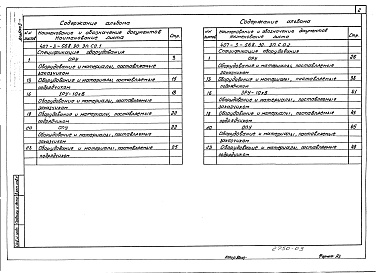 2
Содержание альбома
NN листов
Наименование и обозначение документов
Наименование листа
Стр.
407-3-568.90 ЭП.СО.1
Спецификация оборудования
1
ОРУ
3
Оборудование и материалы, поставляемые
заказчиком
13
Оборудование и материалы, поставляемые
15
подрядчиком
16
ЗРУ-10кВ
18
Оборудование и материалы, поставляемые
заказчиком
18
Оборудование и материалы, поставляемые
20
подрядчиком
20
ОПУ
22
Оборудование и материалы, поставляемые
заказчиком
23
Оборудование и материалы, поставляемые
25
подрядчиком
Содержание альбома
NN листов
Наименование и обозначение документов
Наименование листа
Стр.
407-3-568.90. ЭП.СО.2
Спецификация оборудования
1
ОРУ
26
Оборудование и материалы, поставляемые
заказчиком
13
Оборудование и материалы, поставляемые
38
подрядчиком
16
ЗРУ-10кВ
41
Оборудование и материалы, поставляемые
заказчиком
Оборудование и материалы, поставляемые
подрядчиком
20
ОПУ
45
Оборудование и материалы, поставляемые
заказчиком
23
Оборудование и материалы, поставляемые
48
подрядчиком
Формат А3